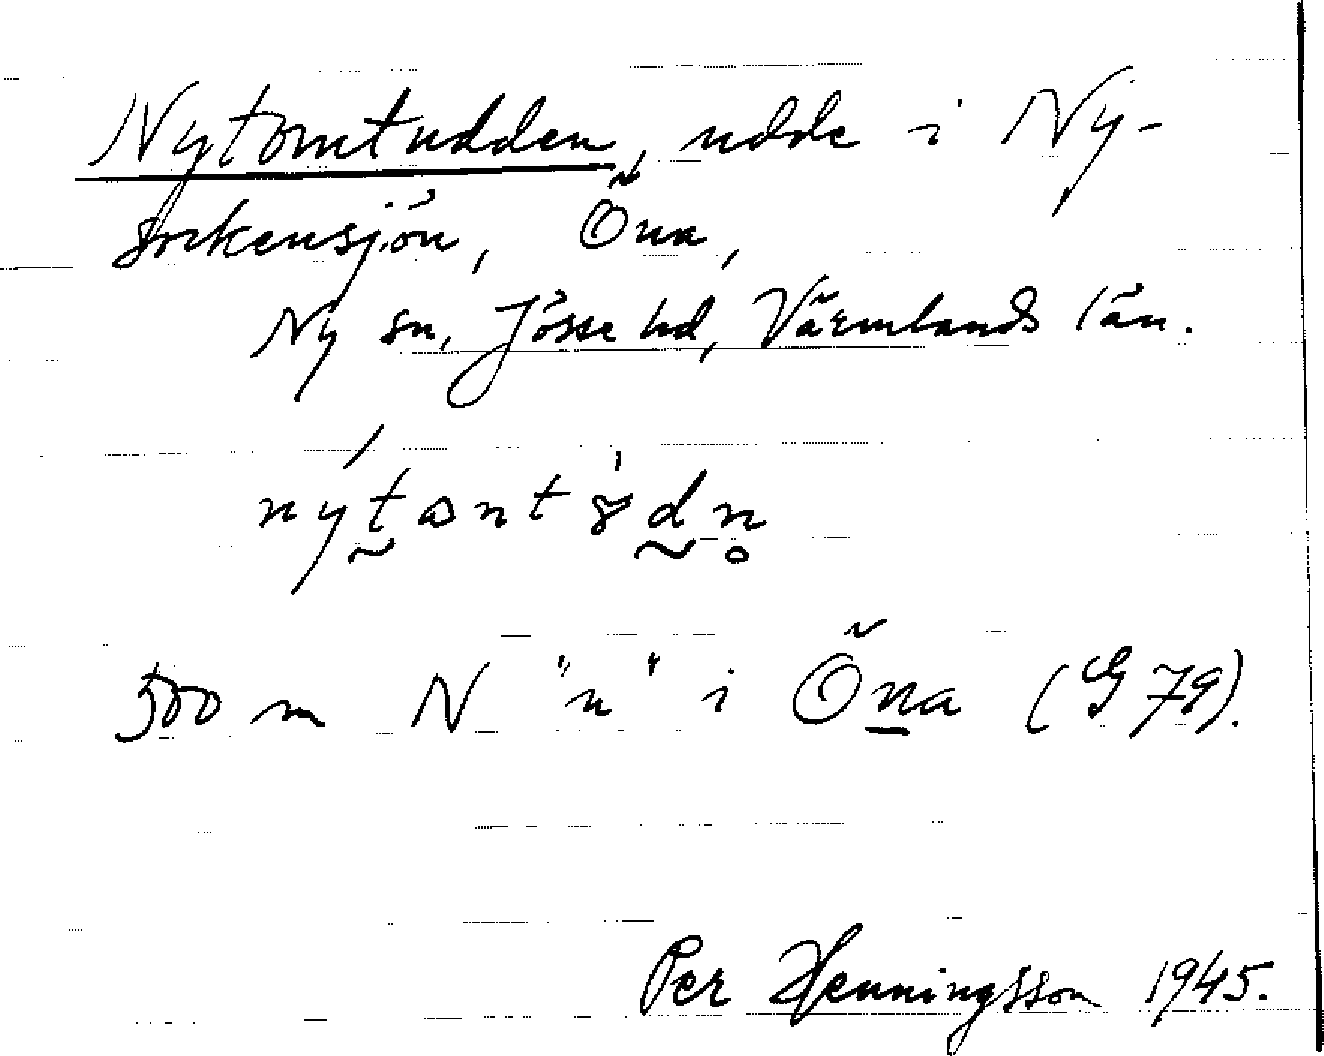 Nytomtudden, udde i Ny-
sockensjön, Öna,
Ny sn, Jösse hd, Värmlands län.
500 m N "n" i Öna (G 79).
Per Henningsson 1945.